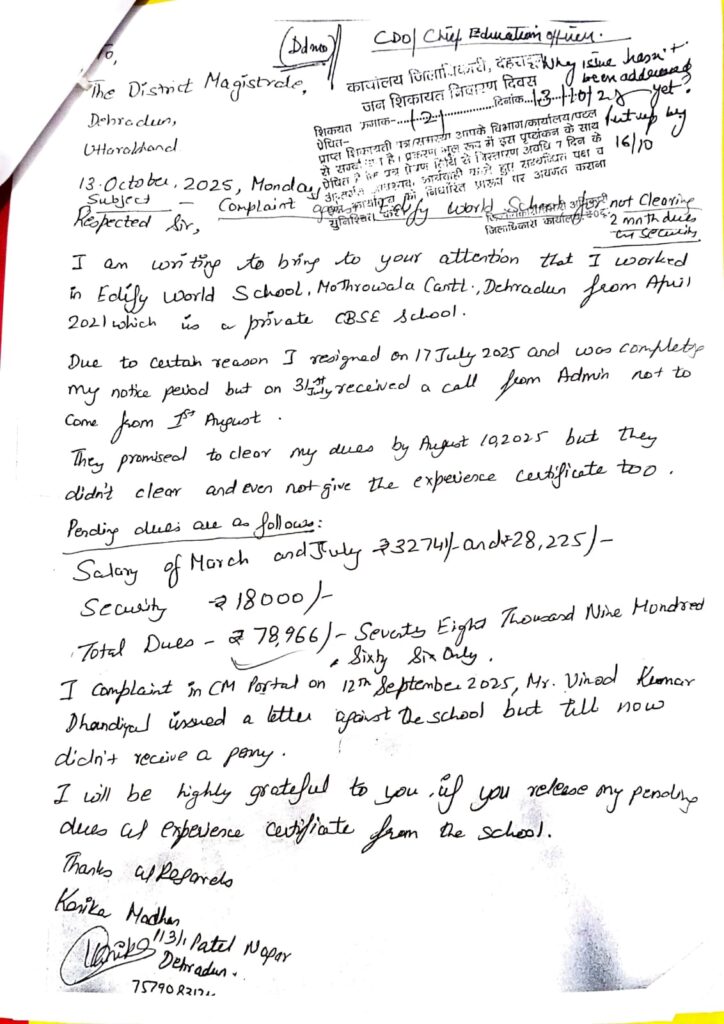 To,
(Ddmo)
CDO/ Chief Education officer.
The District Magistrate,
Dehradun,
Uttarakhand
कार्यालय जिलाधिकारी, देहरादून
जन शिकायत निवारण दिवस
शिकायत क्रमांक- (2) दिनांक 13/10/25
Why issue hasn't
been addressed
yet?
Put up by
16/10
प्रेषित-
प्राप्त शिकायती पत्र/समस्या आपके विभाग/कार्यालय/पटल
से सम्बंधित है। प्रकरण मूल रूप में इस पृष्ठांकन के साथ
प्रेषित है
निर्धारित प्रारूप पर अवगत कराना
13 October, 2025, Monday
Subject - Complaint against Edify World School for not Clearing
2 month dues
& Security
Respected Sir,
I am writing to bring to your attention that I worked
in Edify World School, Mothrowala Cantt., Dehradun from April
2021 which is a private CBSE School.
Due to certain reason I resigned on 17 July 2025 and was completing
my notice period but on 31st July received a call from Admin not to
Come from 1st August.
They promised to clear my dues by August 10, 2025 but they
didn't clear and even not give the experience certificate too.
Pending dues are as follows:
Salary of March and July ₹32741/- and ₹28,225/-
Security ₹18000/-
Total Dues - ₹78,966/- Seventy Eight Thousand Nine Hondred
Sixty Six Only.
I Complaint in CM Portal on 12th September 2025, Mr. Vinod Kumar
Dhandiyal issued a letter against the school but till now
didn't receive a penny.
I will be highly grateful to you, if you release my pending
dues & experience certificate from the school.
Thanks & Regards
Kanika Madhan
Kanika 113/1 Patel Nagar
Dehradun.